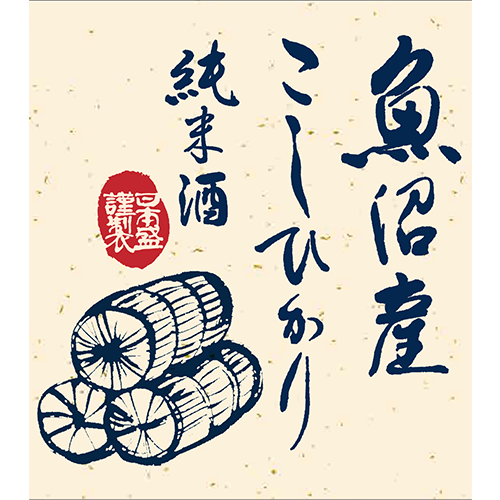 魚沼産
こしひかり
純米酒
日本盛
謹製